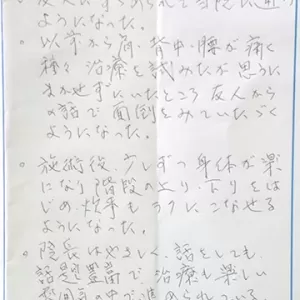 友人にすすめられて当院に通う
ようになった。
○ 以前から肩、背中、腰が痛く
種々治療を試みたが思うに
まかせずにいたところ友人から
の話で面倒をみていただく
ようになった。
○ 施術後、少しずつ身体が楽
になり階段の上り、下りをは
じめ、炊事もラクにこなせる
ようになった。
○ 院長はやさしく、話をしても
話題豊富で治療も楽しい
雰囲気の中で進められている